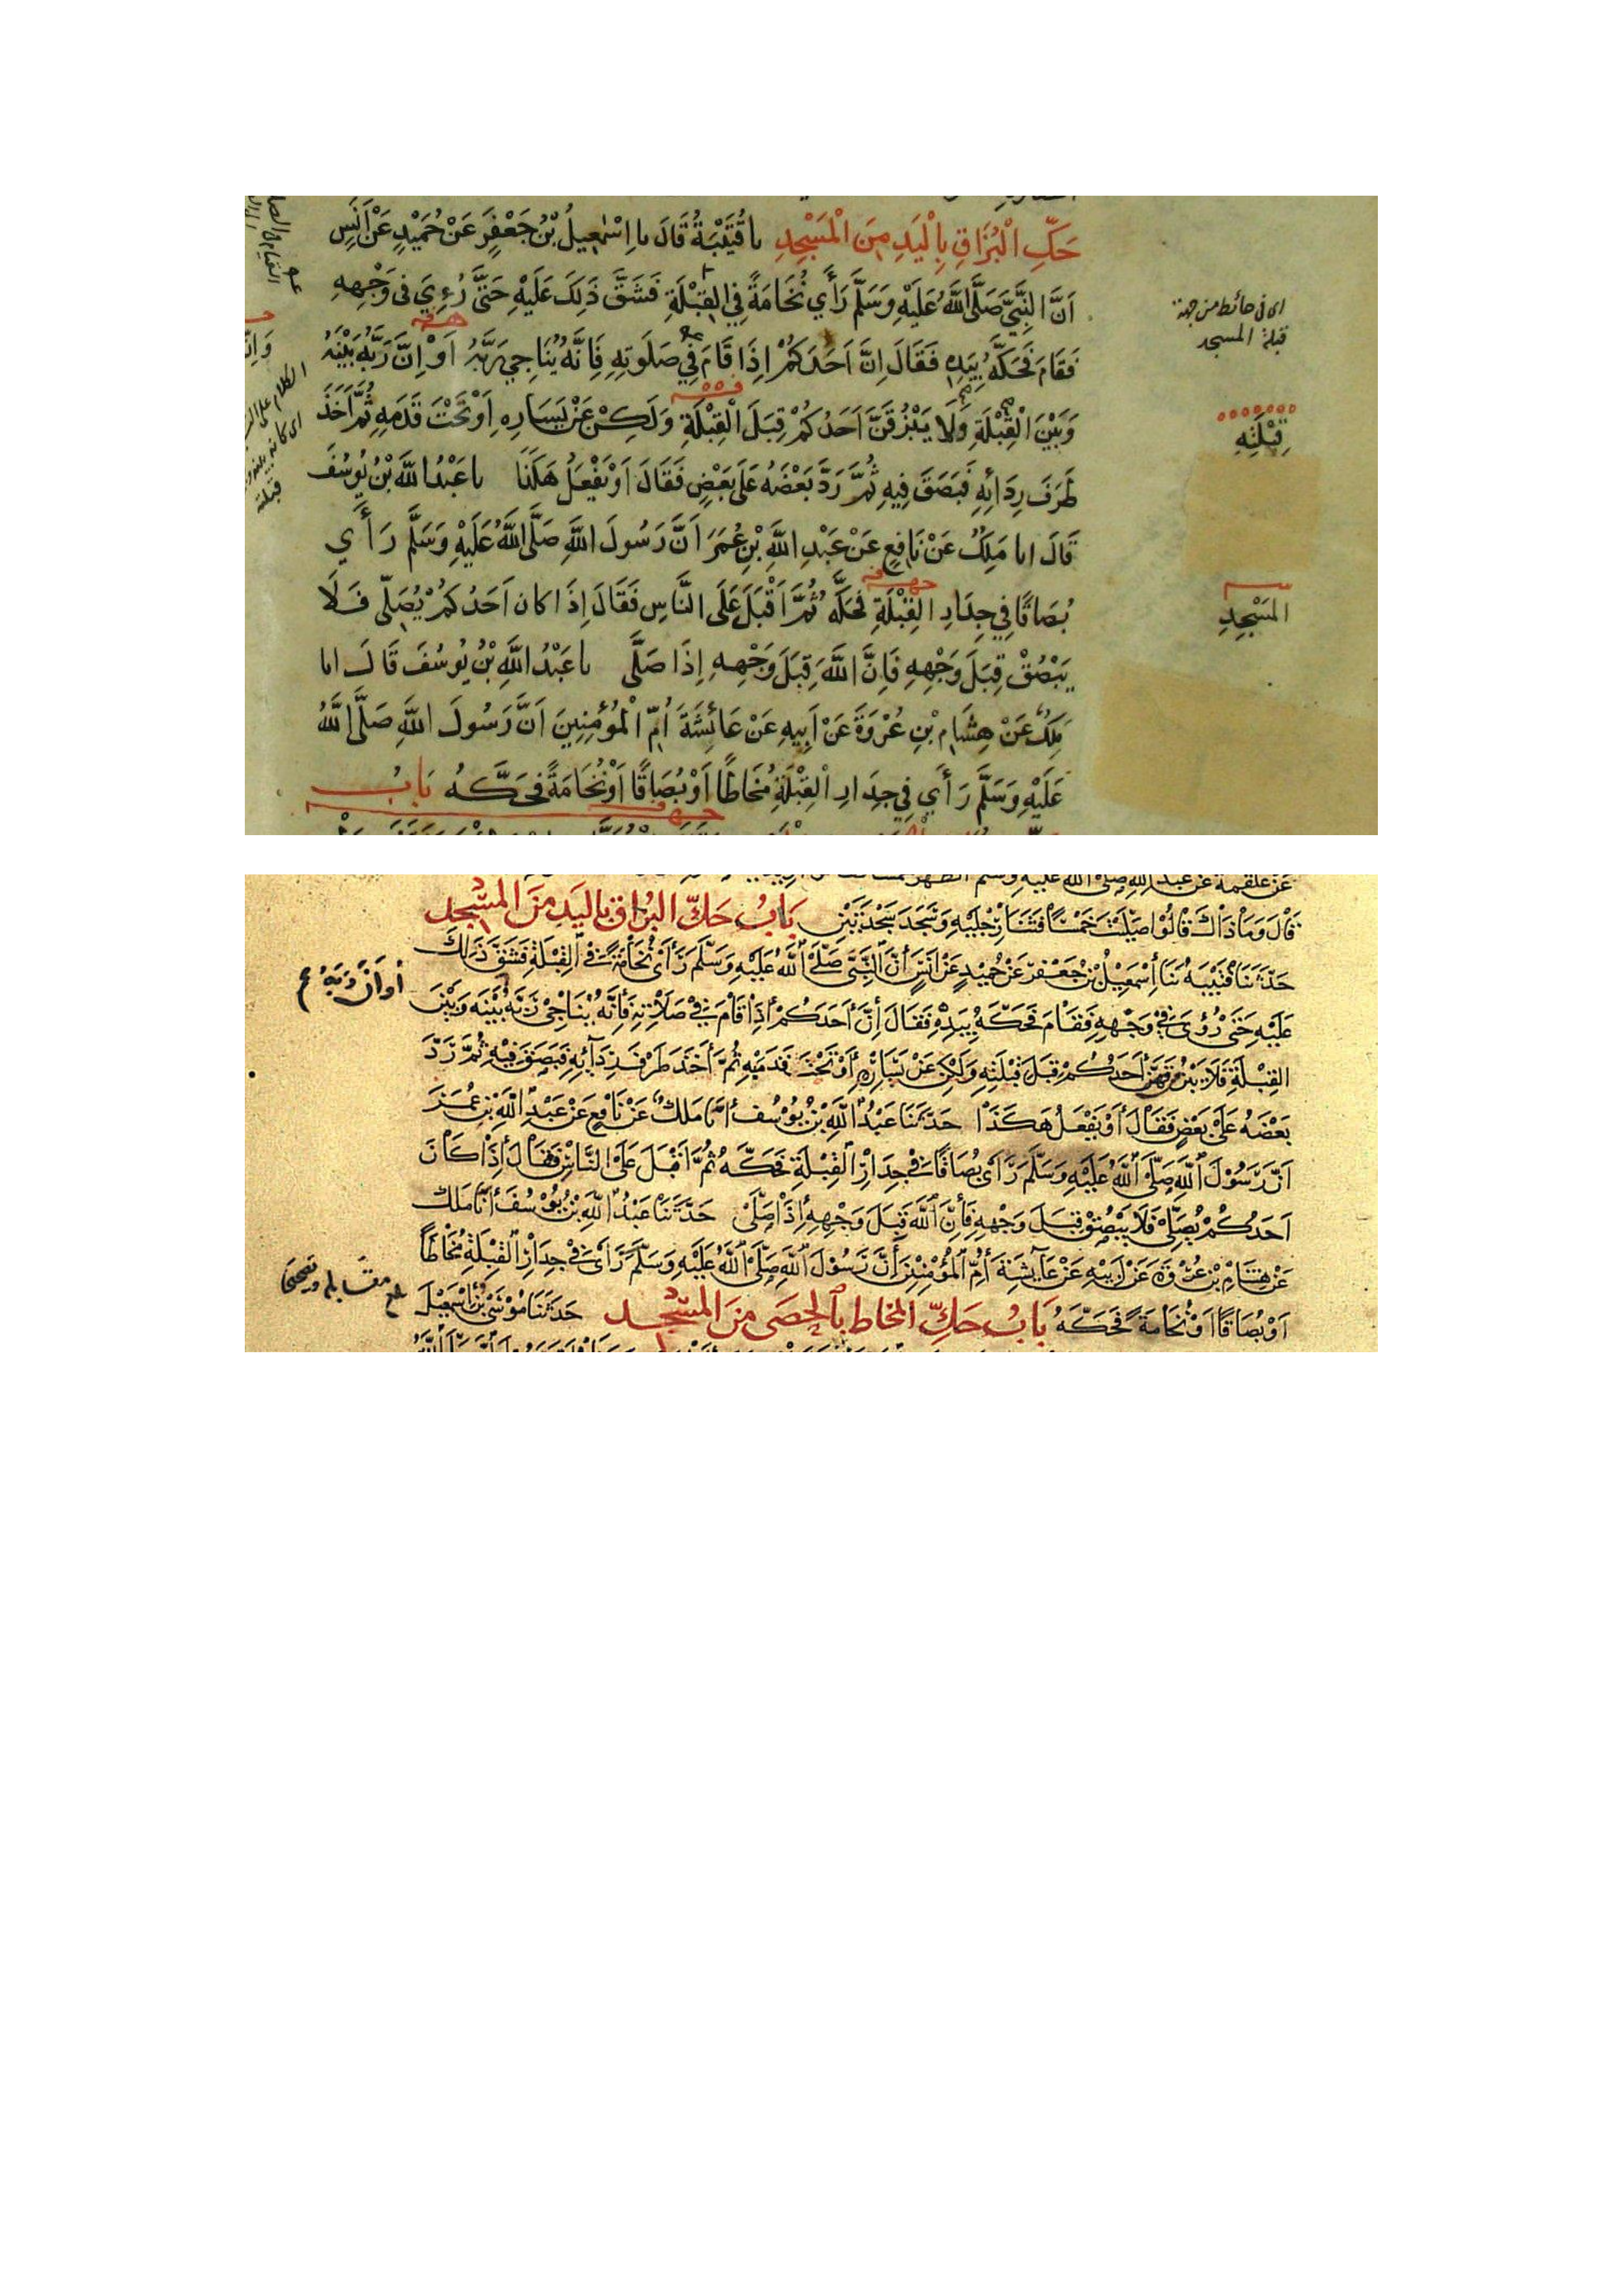 حَكِّ الْبُزَاقِ بِالْيَدِ مِنَ الْمَسْجِدِ نا قُتَيْبَةُ قَالَ نا اِسْمٰعِيلُ بْنُ جَعْفَرٍ عَنْ حُمَيْدٍ عَنْ اَنَسٍ
اَنَّ النَّبِيَّ صَلَّى اللَّهُ عَلَيْهِ وَسَلَّمَ رَأَي نُخَامَةً فِي الْقِبْلَةِ فَشَقَّ ذٰلِكَ عَلَيْهِ حَتَّى رُءِيَ فِي وَجْهِهِ
اى فى حائط من جهة
قبلة المسجد
فَقَامَ فَحَكَّهُ بِيَدِهِ فَقَالَ اِنَّ اَحَدَكُمْ اِذَا قَامَ فِي صَلَوتِهِ فَاِنَّهُ يُنَاجِي رَبَّهُ اَوْ اِنَّ رَبَّهُ بَيْنَهُ
وَبَيْنَ الْقِبْلَةِ وَلَا يَبْزُقَنَّ اَحَدُكُمْ قِبَلَ الْقِبْلَةِ وَلَكِنْ عَنْ يَسَارِهِ اَوْ تَحْتَ قَدَمِهِ ثُمَّ اَخَذَ
قِبْلَتِهِ
طَرَفَ رِدَائِهِ فَبَصَقَ فِيهِ ثُمَّ رَدَّ بَعْضَهُ عَلَى بَعْضٍ فَقَالَ اَوْ يَفْعَلُ هَكَذَا نا عَبْدُ اللَّهِ بْنُ يُوسُفَ
قَالَ انا مَلِكٌ عَنْ نَافِعٍ عَنْ عَبْدِ اللَّهِ بْنِ عُمَرَ اَنَّ رَسُولَ اللَّهِ صَلَّى اللَّهُ عَلَيْهِ وَسَلَّمَ رَأَي
بُصَاقًا فِي جِدَارِ الْقِبْلَةِ فَحَكَّهُ ثُمَّ اَقْبَلَ عَلَى النَّاسِ فَقَالَ اِذَا كَانَ اَحَدُكُمْ يُصَلِّى فَلَا
المَسْجِدِ
يَبْصُقْ قِبَلَ وَجْهِهِ فَاِنَّ اللَّهَ قِبَلَ وَجْهِهِ اِذَا صَلَّى نا عَبْدُ اللَّهِ بْنُ يُوسُفَ قَالَ انا
مَلِكٌ عَنْ هِشَامِ بْنِ عُرْوَةَ عَنْ اَبِيهِ عَنْ عَائِشَةَ اُمِّ الْمُؤْمِنِينَ اَنَّ رَسُولَ اللَّهِ صَلَّى اللَّهُ
عَلَيْهِ وَسَلَّمَ رَأَي فِي جِدَارِ الْقِبْلَةِ مُخَاطًا اَوْ بُصَاقًا اَوْ نُخَامَةً فَحَكَّهُ بَابُ
الكلام على
قبلته
عَنْ عَلْقَمَةَ عَنْ عَبْدِ اللهِ صَلَّى اللهُ عَلَيْهِ وَسَلَّمَ الظُّهْرَ
قَالَ وَمَا ذَاكَ قَالُوا صَلَّيْتَ خَمْسًا فَثَنَى رِجْلَيْهِ وَسَجَدَ سَجْدَتَيْنِ بَابُ حَكِّ البُزَاقِ بِاليَدِ مِنَ المَسْجِدِ
حَدَّثَنَا قُتَيْبَةُ ثَنَا إِسْمَعِيلُ بْنُ جَعْفَرٍ عَنْ حُمَيْدٍ عَنْ أَنَسٍ أَنَّ النَّبِيَّ صَلَّى اللهُ عَلَيْهِ وَسَلَّمَ رَأَى نُخَامَةً فِي القِبْلَةِ فَشَقَّ ذَلِكَ
عَلَيْهِ حَتَّى رُؤِيَ فِي وَجْهِهِ فَقَامَ فَحَكَّهُ بِيَدِهِ فَقَالَ إِنَّ أَحَدَكُمْ إِذَا قَامَ فِي صَلَاتِهِ فَإِنَّهُ يُنَاجِي رَبَّهُ بَيْنَهُ وَبَيْنَ
أو أنَّ رَبَّهُ
القِبْلَةِ فَلَا يَبْزُقَنَّ أَحَدُكُمْ قِبَلَ قِبْلَتِهِ وَلَكِنْ عَنْ يَسَارِهِ أَوْ تَحْتَ قَدَمَيْهِ ثُمَّ أَخَذَ طَرَفَ رِدَآئِهِ فَبَصَقَ فِيهِ ثُمَّ رَدَّ
بَعْضَهُ عَلَى بَعْضٍ فَقَالَ أَوْ يَفْعَلُ هَكَذَا حَدَّثَنَا عَبْدُ اللهِ بْنُ يُوسُفَ أَنَا مَلِكٌ عَنْ نَافِعٍ عَنْ عَبْدِ اللهِ بْنِ عُمَرَ
أَنَّ رَسُولَ اللهِ صَلَّى اللهُ عَلَيْهِ وَسَلَّمَ رَأَى بُصَاقًا فِي جِدَارِ القِبْلَةِ فَحَكَّهُ ثُمَّ أَقْبَلَ عَلَى النَّاسِ فَقَالَ إِذَا كَانَ
أَحَدُكُمْ يُصَلِّي فَلَا يَبْصُقْ قِبَلَ وَجْهِهِ فَإِنَّ اللهَ قِبَلَ وَجْهِهِ إِذَا صَلَّى حَدَّثَنَا عَبْدُ اللهِ بْنُ يُوسُفَ أَنَا مَلِكٌ
عَنْ هِشَامِ بْنِ عُرْوَةَ عَنْ أَبِيهِ عَنْ عَآئِشَةَ أُمِّ المُؤْمِنِينَ أَنَّ رَسُولَ اللهِ صَلَّى اللهُ عَلَيْهِ وَسَلَّمَ رَأَى فِي جِدَارِ القِبْلَةِ مُخَاطًا
أَوْ بُصَاقًا أَوْ نُخَامَةً فَحَكَّهُ بَابُ حَكِّ المُخَاطِ بِالحَصَى مِنَ المَسْجِدِ حَدَّثَنَا مُوسَى بْنُ إِسْمَعِيلَ
بلغ مقابلة وتصحيحا